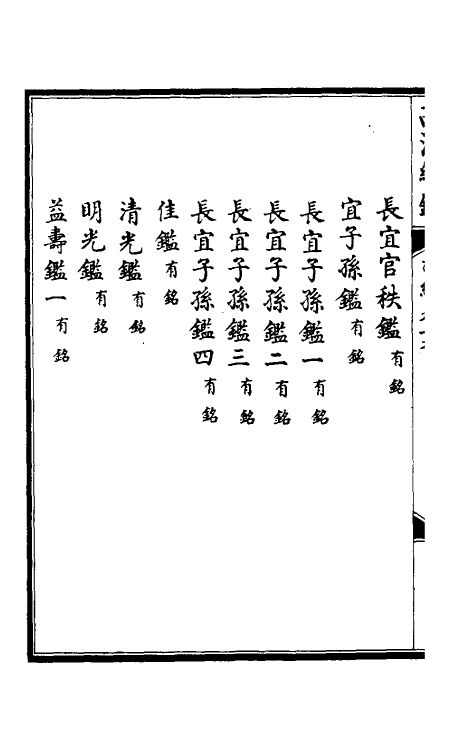 長宜官秩鑑有銘
宜子孫鑑有銘
長宜子孫鑑一有銘
長宜子孫鑑二有銘
長宜子孫鑑三有銘
長宜子孫鑑四有銘
佳鑑有銘
清光鑑有銘
明光鑑有銘
益壽鑑一有銘